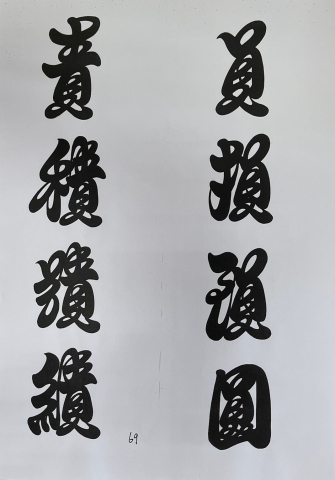 員損殞圓
責積蹟績
69